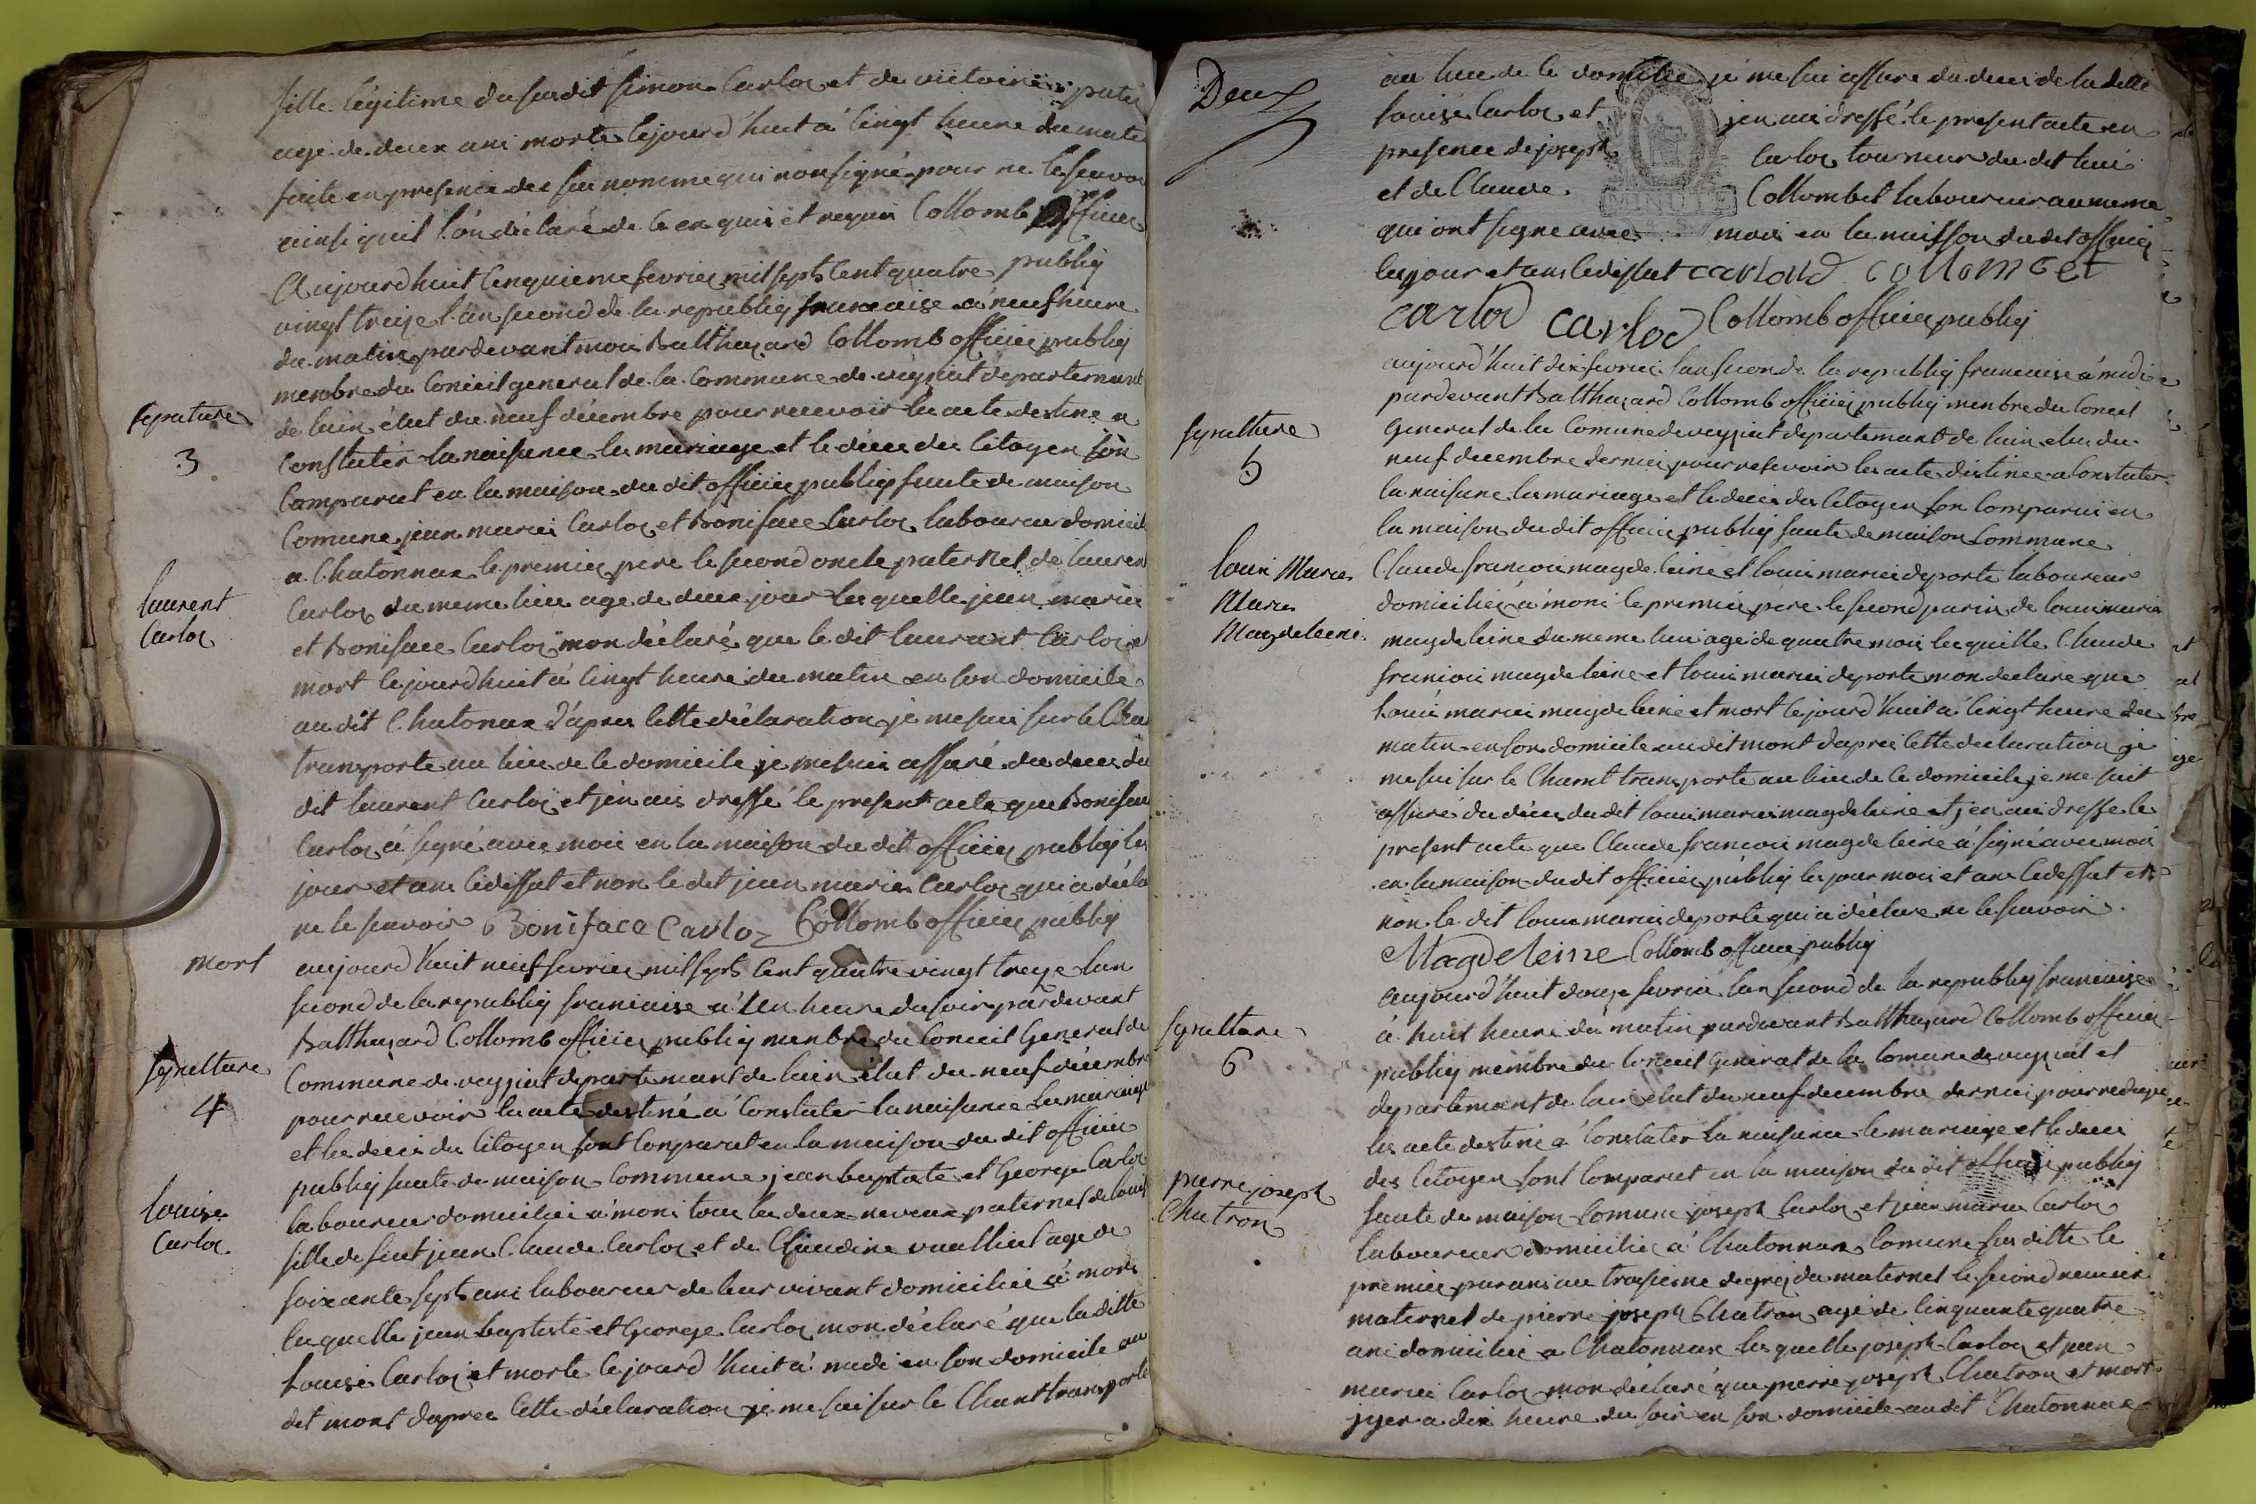 fille légitime du susdit simon Carloz et de victoire
age de deux ans morte cejourd'huit à cinqt heure du mati
faite en presence des sus nomme qui non signé pour ne le savoi
ainsi quil l'on déclaré de ce enquis et requis Collomb officie
publiq
Aujourd'huit cinquieme fevrier mil septs cent quatre
vingt treize l'an second de la republiq francaise a neuf heure
du matin pardevant moi Balthazard Collomb officier publiq
membre du Conseil general de la Commune de veyziat departement
de lain élut du neuf décembre pour recevoir les acte destine a
sepulture
3
Constater la naisance les mariage et le déces des Citoyen son
Comparut en la maison du dit officier publiq faute de maison
Comune jean marie Carloz et Boniface Carloz laboureur domicil
a Chatonnax le premier pere le second oncle paternel de lauren
laurent
Carloz
Carloz du meme lieu age de deux jour lesquelle jean marie
et Boniface Carloz mon déclaré que le dit laurant Carloz et
mort cejourdhuit à cinqt heure du matin en son domicile
au dit Chatonax d'apres cette déclaration je me suis sur le Cha
transporte au lieu de ce domicile je me suis assuré du deces du
dit laurent Carloz et jen ais dressé le present acte que Boniface
Carloz à signé avec moi en la maison du dit officier publiq les
jour et ans cidessut et non le dit jean marie Carloz qui a décla
ne le savoir Boniface Carloz Collomb officier publiq
mort
aujourd'huit neuf fevrier mil septs cent quatre vingt treze lan
second de la republiq francaise a Un heure du soir pardevant
Balthazard Collomb officier publiq membre du Conseil General de
sepulture
4
Commune de veyziat departemant de lain élut du neuf décembre
pour recevoir les acte destiné a Constater la naisance les mariage
et les deces des Citoyen sont Comparut en la maison du dit officier
publiq faute de maison Commune jean baptiste et George Carloz
louise
Carloz
laboureur domicilié à mons tous les deux neveux paternel de louise
fille de feut jean Claude Carloz et de Claudine vuaillat age de
soixante septs ans laboureur de leur vivant domicilié à mons
lesquelle jean baptiste et George Carloz mon déclaré que la ditte
Louise Carloz et morte cejourd'huit à midi en son domicile au
dit mont dapres cette déclaration je me sui sur le Chant transporté
Deux
au lieu de ce domicile je me sui assure du deces de la ditte
louise Carloz et jen ais dressé le present acte en
presence de joseph Carloz tourneur du dit lieu
et de Claude Collombet laboureur au meme
MINUTE
qui ont signe avec moi en la maisson du dit officier
les jour et ans cidessut carlod collombet
carlod carlod Collomb officier publiq
aujourd'huit dix fevrier lan second de la republiq francaise à midi
pardevant Balthazard Collomb officier publiq membre du Conseil
sepulture
5
General de la Comune de veyziat departemant de lain elu du
neuf decembre dernier pour resevoir les acte distinee a Constater
la naisance les mariage et le deces des Citoyen son Comparu en
la maison du dit officier publiq faute de maison Commune
louis Marie
Marie
Magdeleine
Claude francois magdeleine et louis marie deporte laboureur
domicilié a mons le premier pere le second parin de louis marie
magdeleine du meme lieu age de quatre mois lesquelle Claude
francois magdeleine et louis marie deporte mon declare que
louis marie magdeleine et mort cejourd'huit à cinqt heure du
matin en son domicile au dit mont dapres cette declaration je
me sui sur le Chamt transporte au lieu de ce domicile je me suit
assuré du déces du dit louis marie magdeleine et jen ai dresse le
present acte que Claude francois magdeleine à signé avec moi
en la maison du dit officier publiq les jour mois et ans cidessut et
non le dit louis marie deporte qui a déclare ne le savoir.
Magdeleine Collomb officier publiq
aujourd'huit douze fevrié lan second de la republiq francaise
sepulture
6
à huit heure du matin pardevant Balthazard Collomb officier
publiq membre du Conseil General de la Comune de veyziat et
departemant de lain elut du neuf decembre dernier pour rediger
les acte destiné a Constater la naisance le mariage et le deces
des Citoyen sont Comparut en la maison du dit officier publiq
pierre joseph
Chatron
faute de maison Comune joseph Carloz et jean marie Carloz
laboureur domicilié a Chatonnax Comune sus ditte le
premier parans au troisieme degrez du maternel le second neveux
maternel de pierre joseph Chatron age de Cinquante quatre
ans domicilié a Chatonnax lesquelle joseph Carloz et jean
marie Carloz mon déclaré que pierre joseph Chatron et mort
jyer a dix heure du soir en son domicile au dit Chatonnax